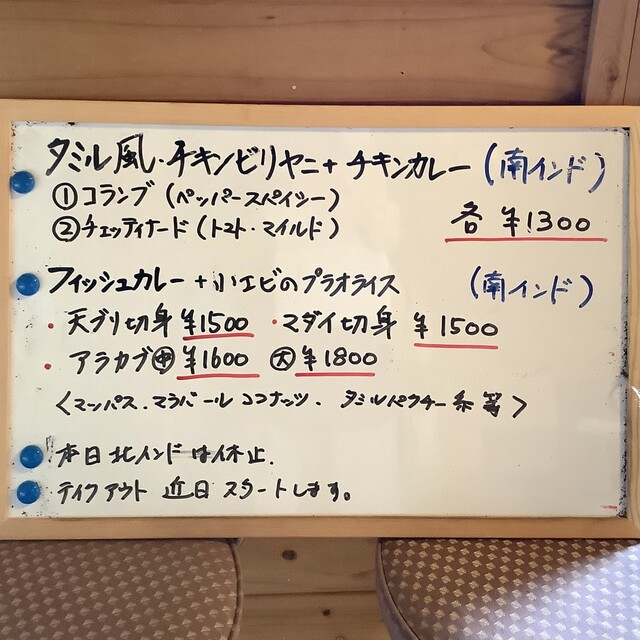 タミル風・チキンビリヤニ+チキンカレー(南インド)
①コランブ(ペッパースパイシー)
②チェッティナード(トマト・マイルド)
各¥1300
フィッシュカレー+小エビのプラオライス (南インド)
・天ブリ切身 ¥1500 ・マダイ切身 ¥1500
・アラカブ㊥ ¥1600 大 ¥1800
<マッパス・マラバールココナッツ・タミル 系等>
本日北インドは休止.
テイクアウト 近日 スタートします。